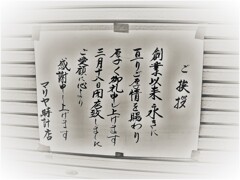 ご挨拶
創業以来永きに
亘りご厚情を賜わり
厚く御礼申し上げます
三月十八日閉店致しました
ご愛顧に心より
感謝申し上げます
マリヤ時計店